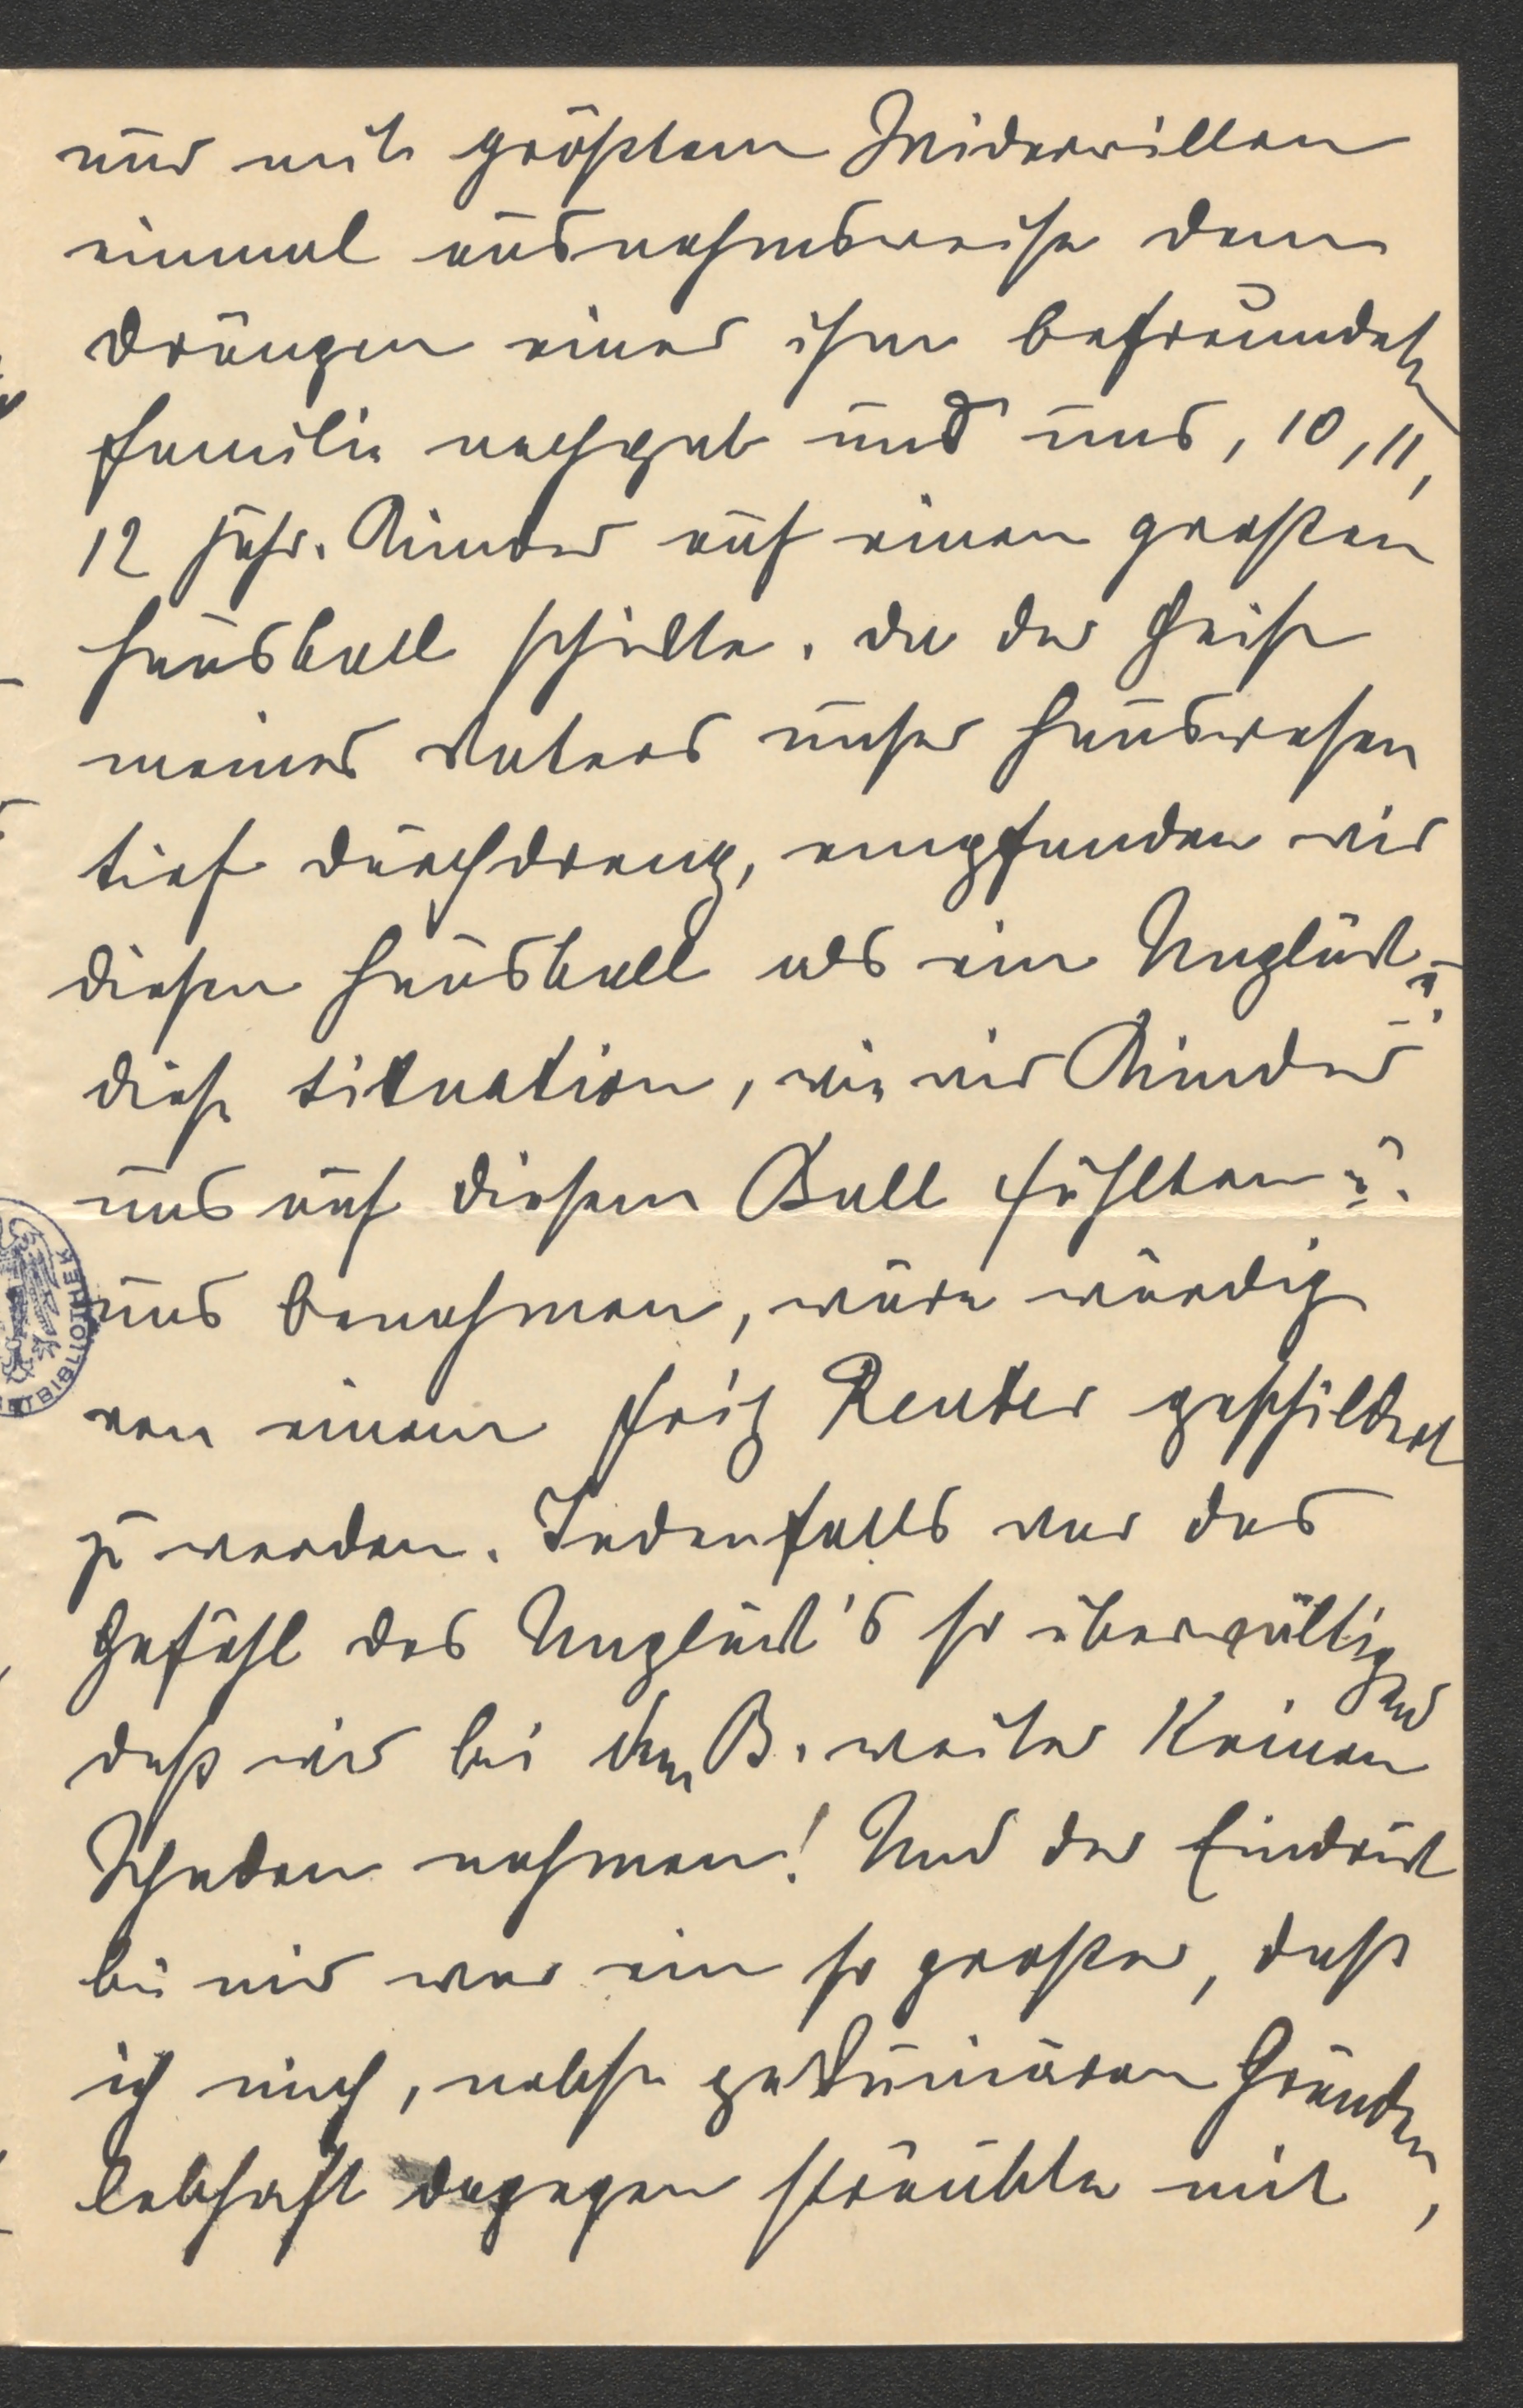 nur mit größtem Widerwillen
einmal ausnahmsweise dem
Drängen einer ihm befreundeten
Familie nachgab und uns, 10, 11,
12 jähr. Kinder auf einen großen
Hausball schickte. Da der Geist
meines Vaters unser Hauswesen
tief durchdrang, empfanden wir
diesen Hausball als ein Unglück u.
diese Situation, wie wir Kinder
uns auf diesem Ball fühlten u.
uns benahmen, wäre würdig
von einem Fritz Reuter geschildert
zu werden. Jedenfalls war das
Gefühl des Unglück's so überwältigend
daß wir bei dem B. weiter keinen
Schaden nahmen! Und der Eindruck
bei mir war ein so großer, daß
ich mich, nebst pekuniären Gründen,
lebhaft dagegen sträubte mit
BIBLIOTHEK